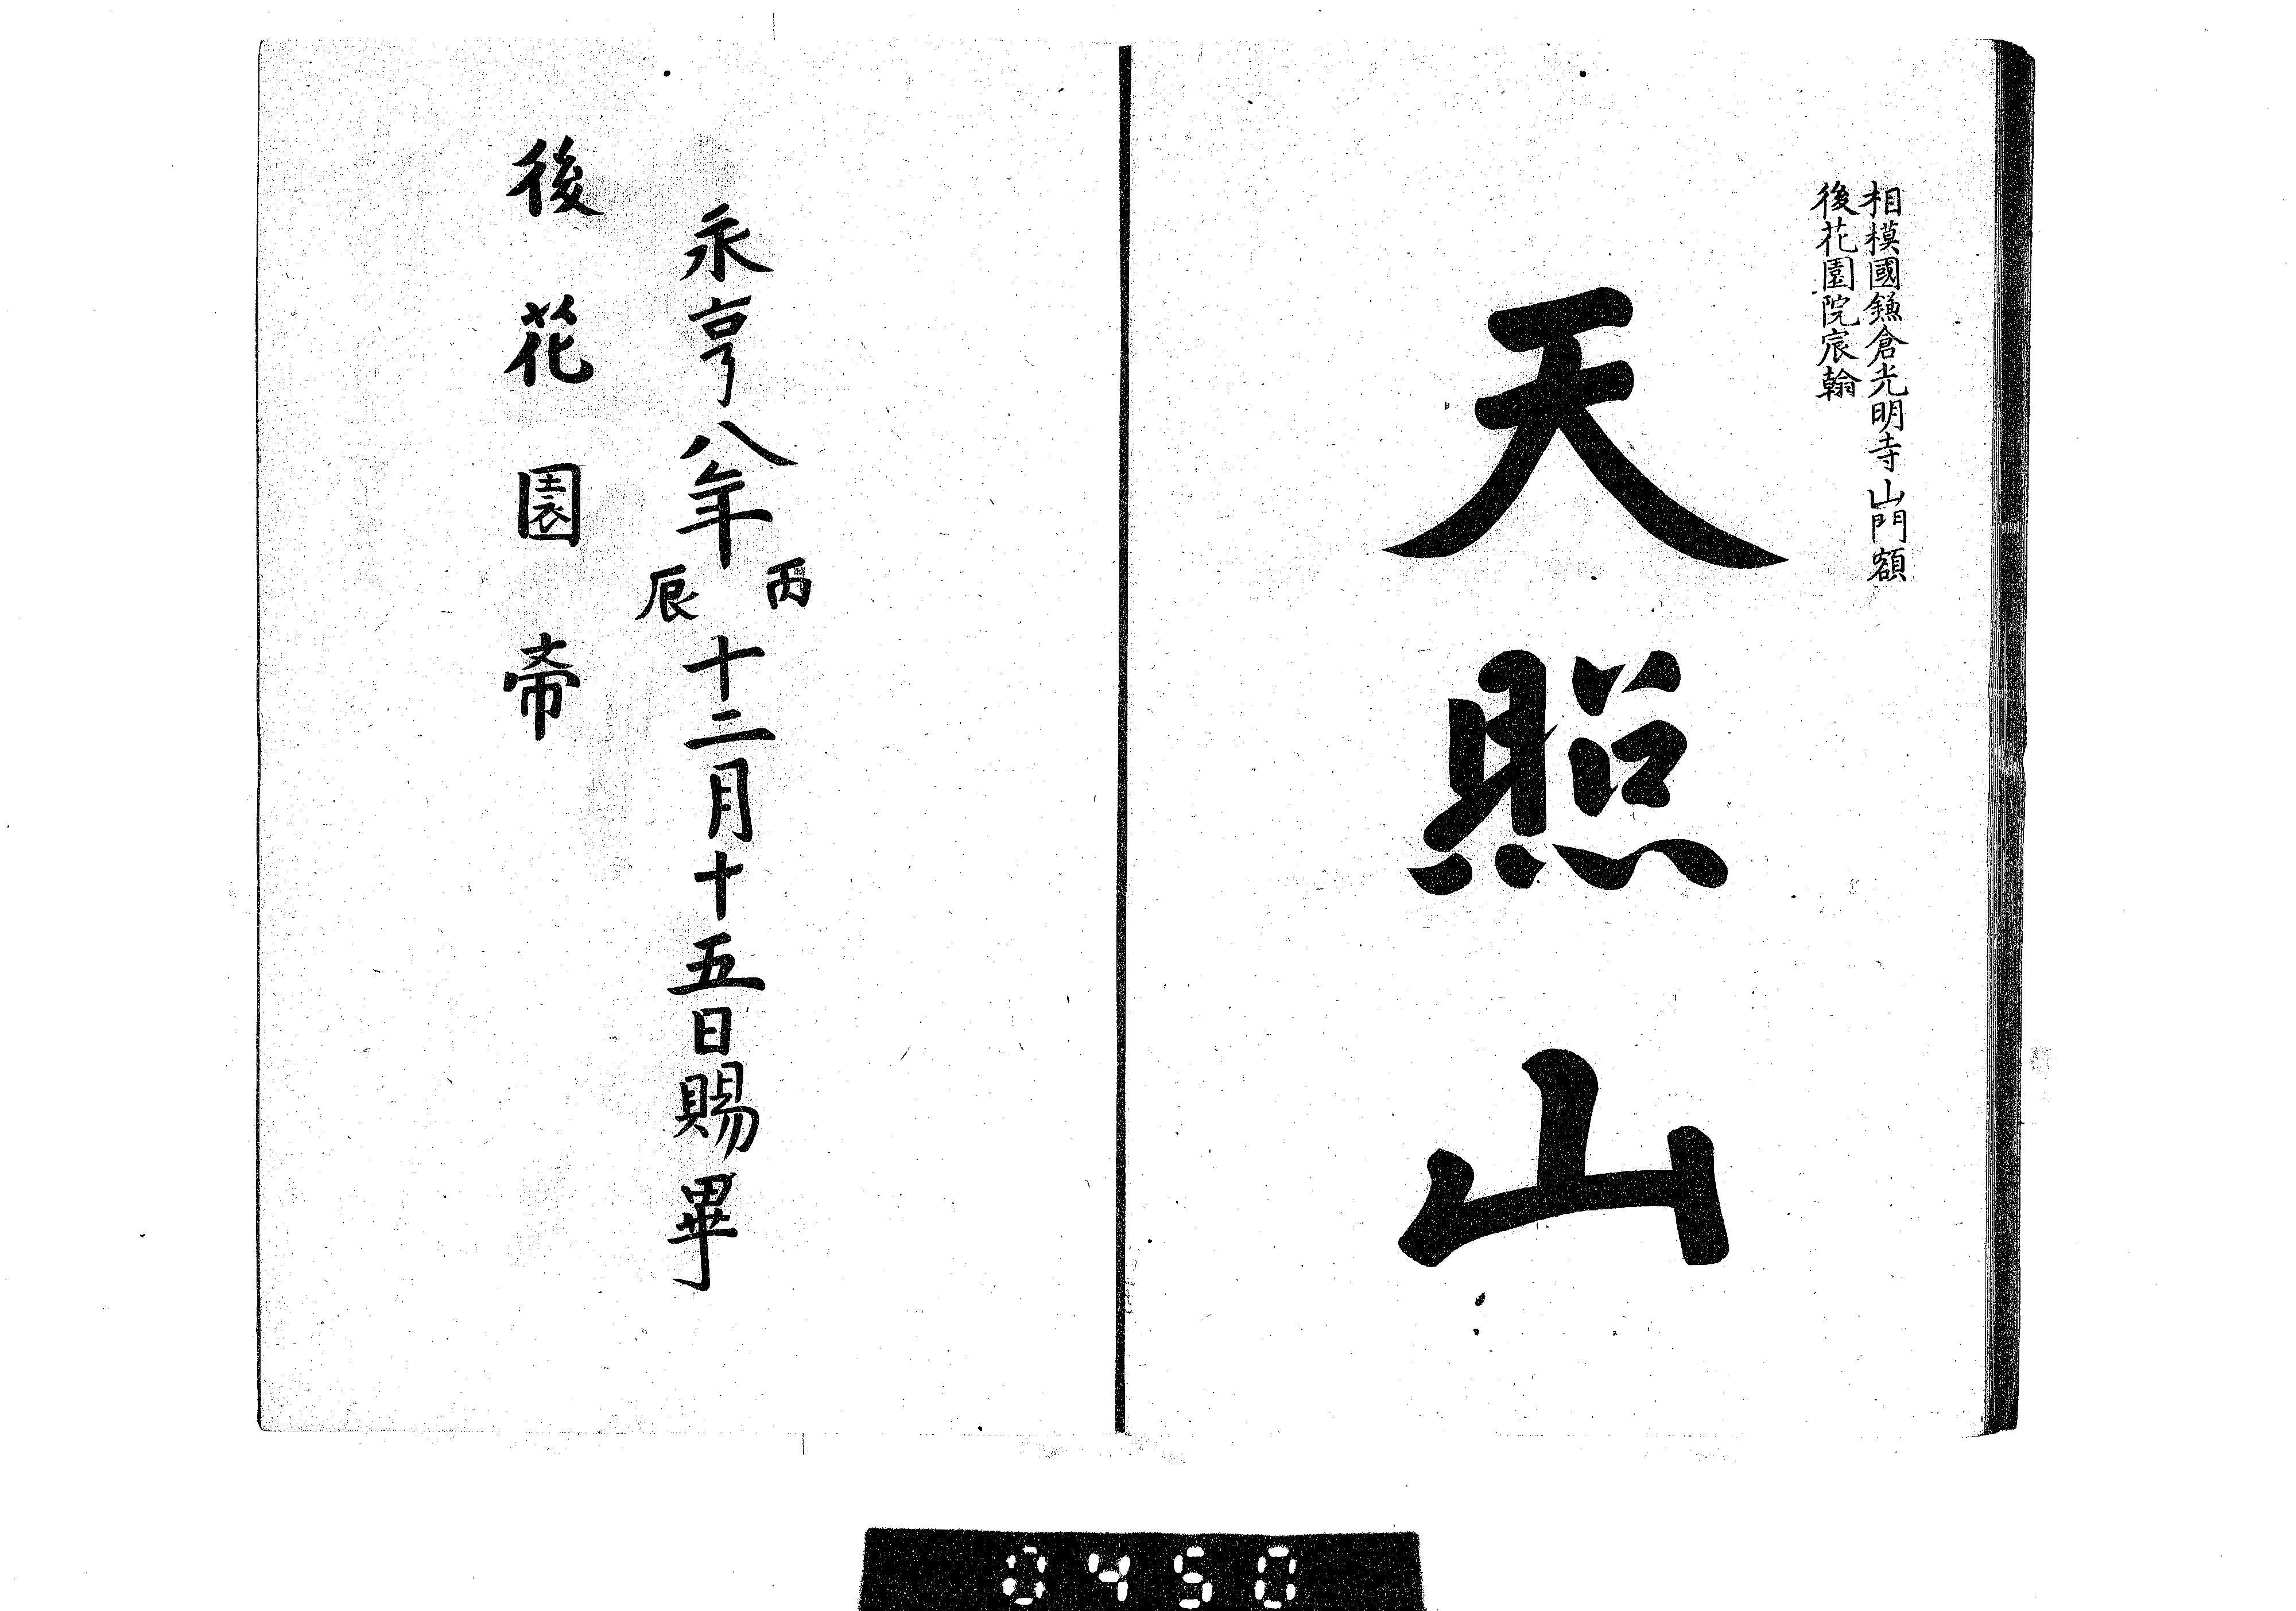 相模國鎌倉光明寺山門額
後花園院宸翰
天照山
永亨八年丙辰十二月十五日賜畢
後花園帝
0450